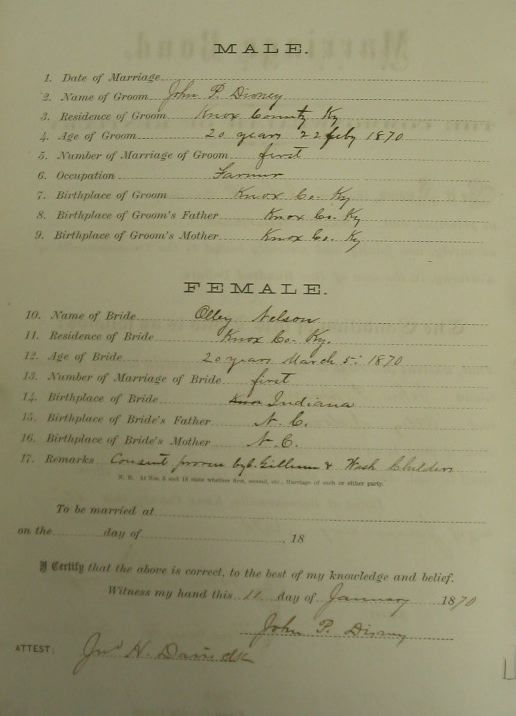 MALE.
1. Date of Marriage
2. Name of Groom John P. Disney
3. Residence of Groom Knox County Ky
4. Age of Groom 20 years 22 feby 1870
5. Number of Marriage of Groom first
6. Occupation Farmer
7. Birthplace of Groom Knox Co. Ky
8. Birthplace of Groom's Father Knox Co. Ky
9. Birthplace of Groom's Mother Knox Co. Ky
FEMALE.
10. Name of Bride Olley Nelson
11. Residence of Bride Knox Co. Ky.
12. Age of Bride 20 years March 5: 1870
13. Number of Marriage of Bride first
14. Birthplace of Bride Knox Indiana
15. Birthplace of Bride's Father N. C.
16. Birthplace of Bride's Mother N. C.
17. Remarks Consent proven by Gillum & Wash Childers
N. B. At Nos. 5 and 13 state whether first, second, etc., Marriage of such or either party.
To be married at
on the day of , 18
I Certify that the above is correct, to the best of my knowledge and belief.
Witness my hand this 11 day of January 1870
John P. Disney
ATTEST: Jno H. Davis clk